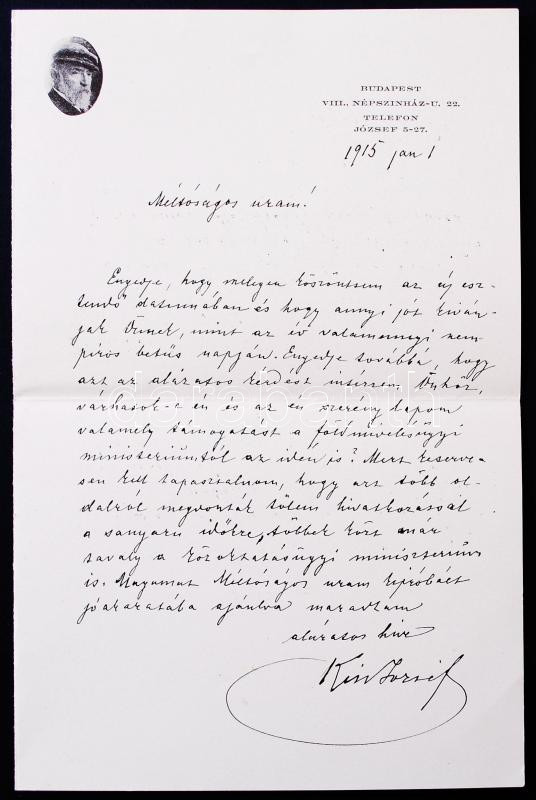 BUDAPEST
VIII., NÉPSZINHÁZ-U. 22.
TELEFON
JÓZSEF 5-27.
1915 jan 1
Méltóságos uram!
Engedje, hogy melegen köszöntsem az új esz-
tendő dátumában és hogy annyi jót kíván-
jak Önnek, mint az év valamennyi nem
piros betűs napján. Engedje továbbá, hogy
azt az alázatos kérdést intézzem Önhöz,
várhatok-e én és az én szerény lapom
valamely támogatást a földmívelésügyi
ministeriumtól az idén is? Mert
kell tapasztalnom, hogy azt több ol-
dalról megvonták tőlem hivatkozással
a sanyaru időkre, többek közt már
tavaly a közoktatásügyi ministerium
is. Magamat Méltóságos uram kipróbált
jóakaratába ajánlva maradtam
alázatos híve
Kiss József
darabanth